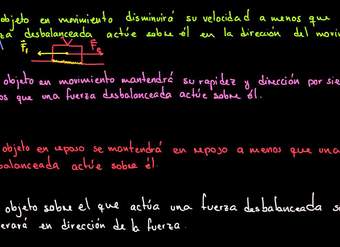 objeto en movimiento disminuirá su velocidad a menos que
za desbalanceada actúe sobre él en la dirección del movim
F₁ F₂
objeto en movimiento mantendrá su rapidez y dirección por sie
os que una fuerza desbalanceada actúe sobre él.
objeto en reposo se mantendrá en reposo a menos que una
balanceada actúe sobre él.
objeto sobre el que actúa una fuerza desbalanceada s
erará en dirección de la fuerza.